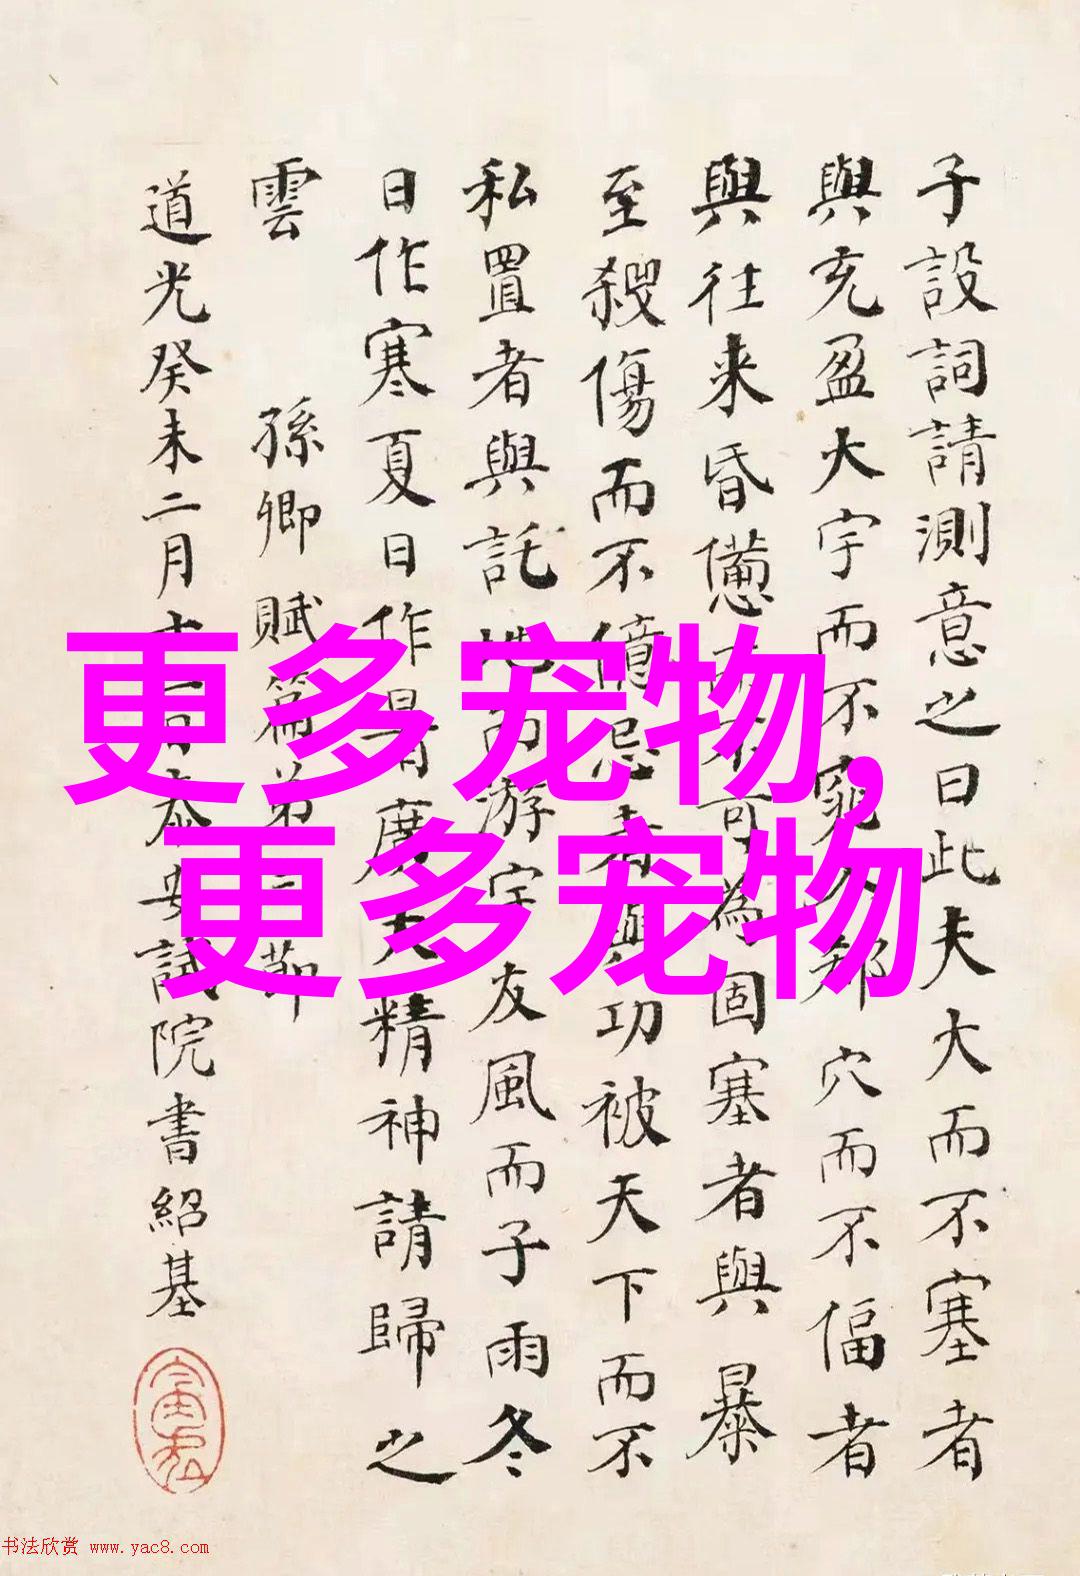 子設詞請測意之曰此夫大而不塞者
與充盈大宇而不窕入郄穴而不偪者
與往来昏憊而不可為固塞者與暴
至殺傷而不億忌者與功被天下而不
私置者與託地而游宇友風而子雨冬
日作寒夏日作暑廣大精神請歸之
雲 孫卿賦篇弟二節
道光癸未二月十一日泰安試院書紹基
更多宠物,
更多宠物
书法欣赏 www.yac8.com